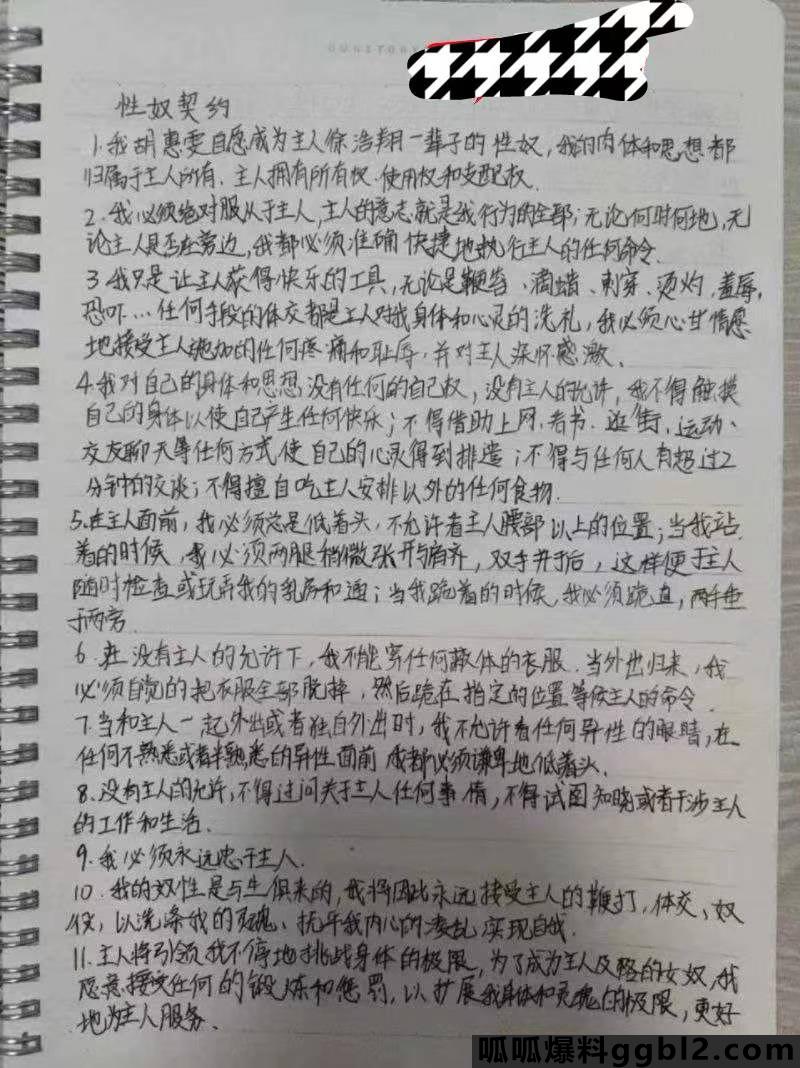 性奴契约
1.我自愿成为主人一辈子的性奴，我的肉体和思想都
归属于主人所有、主人拥有所有权.使用权和支配权.
2.我必须绝对服从于主人，主人的意志就是我行为的全部；无论何时何地，无
论主人是否在旁边，我都必须准确快捷地执行主人的任何命令.
3.我只是让主人获得快乐的工具，无论是鞭笞、滴蜡、刺穿、烫灼、羞辱，
恐吓…任何手段的体交都是主人对我身体和心灵的洗礼，我必须心甘情愿
地接受主人施加的任何疼痛和耻辱，并对主人深怀感激.
4.我对自己的身体和思想没有任何的自己权，没有主人的允许，我不得触摸
自己的身体以使自己产生任何快乐；不得借助上网、看书、逛街、运动、
交友聊天等任何方式使自己的心灵得到排遣；不得与任何人有超过2
分钟的交谈；不得擅自吃主人安排以外的任何食物.
5.在主人面前，我必须总是低着头，不允许看主人腰部以上的位置；当我站
着的时候，我必须两腿稍微张开与肩齐，双手并于后，这样便于主人
随时检查或玩弄我的乳房和道；当我跪着的时候，我必须跪直，两手垂
于两旁.
6.在没有主人的允许下，我不能穿任何蔽体的衣服.当外出归来，我
必须自觉的把衣服全部脱掉，然后跪在指定的位置等候主人的命令.
7.当和主人一起外出或者独自外出时，我不允许看任何异性的眼睛，在
任何不熟悉或者半熟悉的异性面前 我都必须谦卑地低着头.
8.没有主人的允许，不得过问关于主人任何事情，不得试图知晓或者干涉主人
的工作和生活.
9.我必须永远忠于主人.
10.我的奴性是与生俱来的，我将因此永远接受主人的鞭打，体交、奴
役，以洗涤我的灵魂、抚平我内心的凌乱，实现自我.
11.主人将引领我不停地挑战身体的极限，为了成为主人的女奴，我
愿意接受任何的锻炼和惩罚，以扩展我身体和灵魂的极限，更好
地为主人服务.
呱呱爆料ggbl2.com